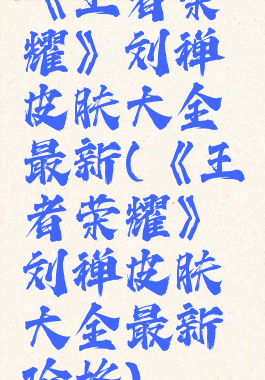 《王者荣
耀》刘禅
皮肤大全
最新(《王
者荣耀》
刘禅皮肤
大全最新